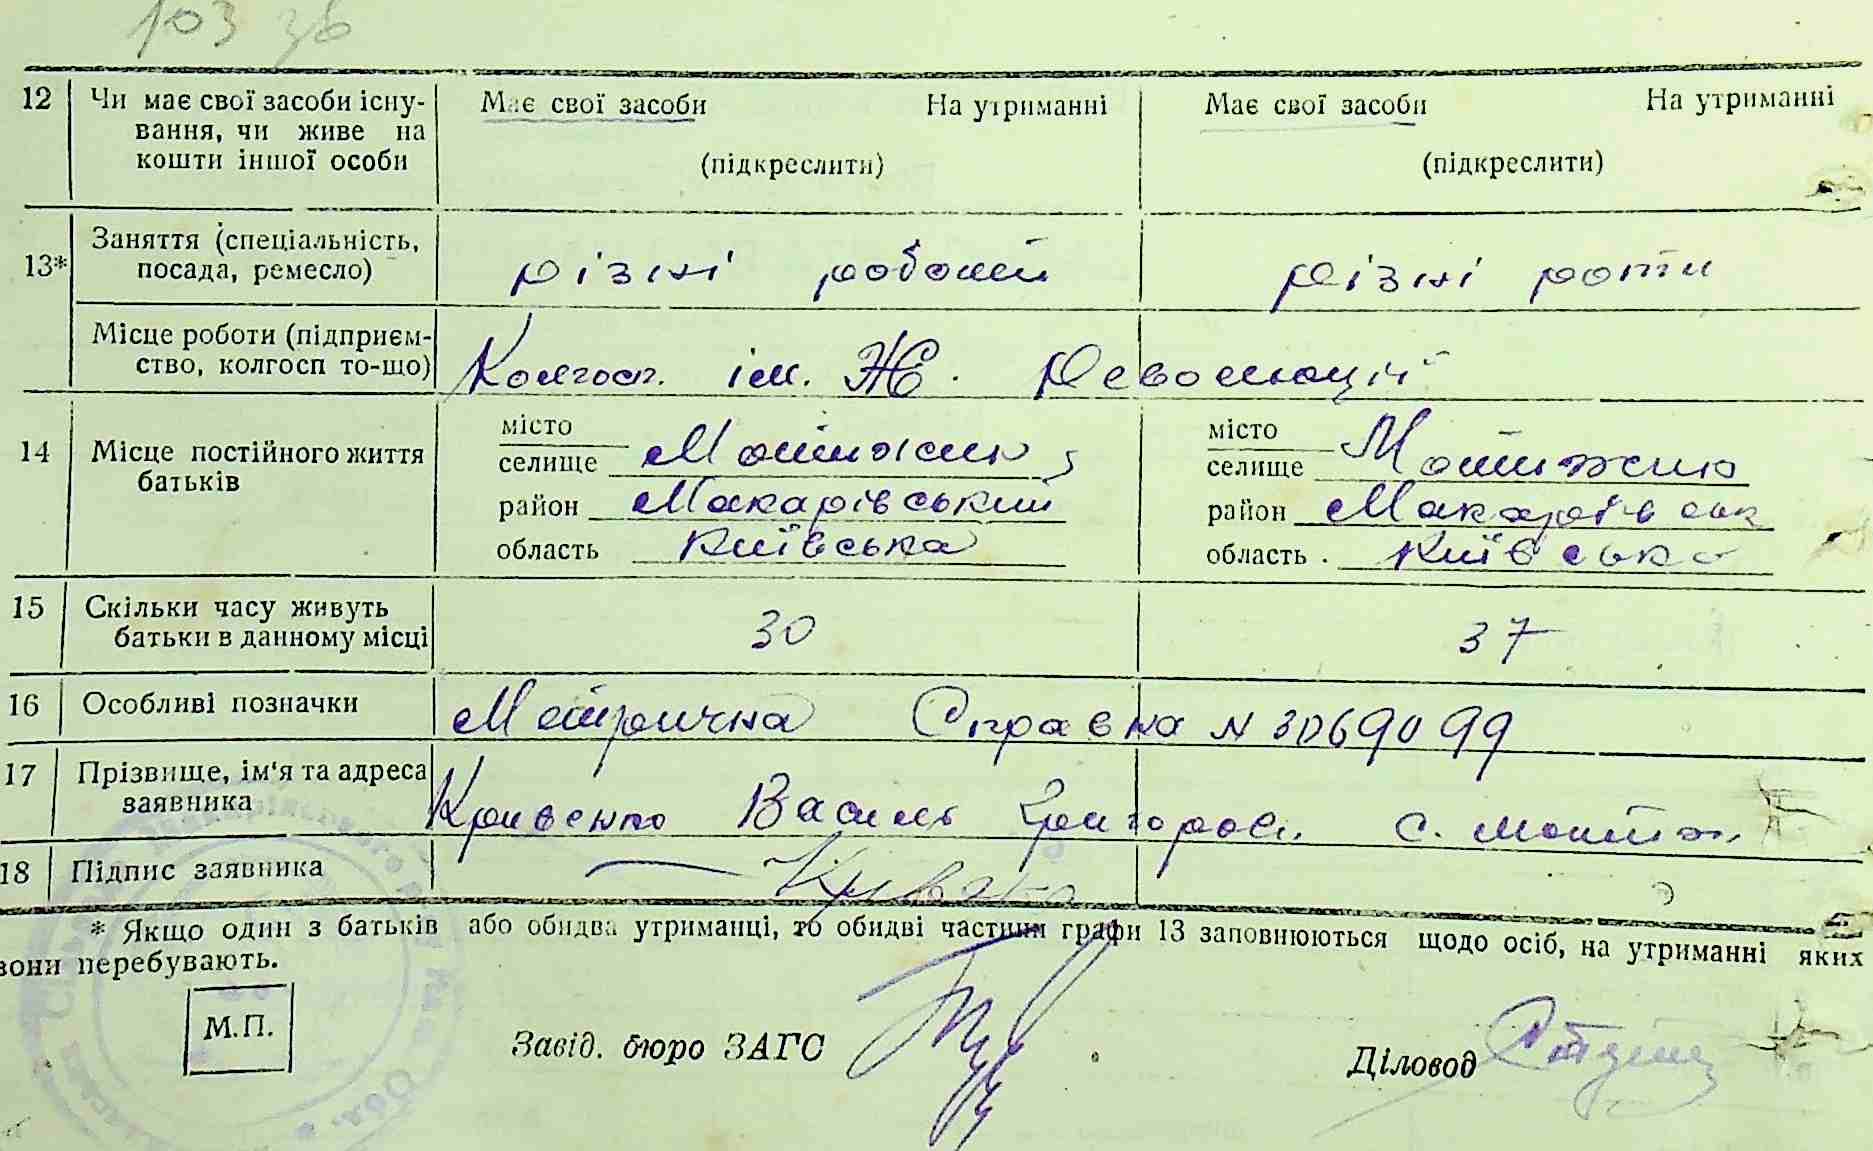 103 зв
12 Чи має свої засоби існу- Має свої засоби На утриманні Має свої засоби На утриманні
вання, чи живе на
кошти іншої особи (підкреслити) (підкреслити)
13* Заняття (спеціальність,
посада, ремесло) різні роботи різні роти
Місце роботи (підприєм-
ство, колгосп то-що) Колгосп. ім. Ж. Революції
14 Місце постійного життя
батьків
місто місто
селище Мотижин, селище Мотижин
район Макарівський район Макарівськ
область Київська область Київська
15 Скільки часу живуть
батьки в данному місці 30 37
16 Особливі позначки Метрична Справка N 3069099
17 Прізвище, ім'я та адреса
заявника Кривенко Василь Григоров. с. Мотиж.
18 Підпис заявника
* Якщо один з батьків або обидва утриманці, то обидві частини графи 13 заповнюються щодо осіб, на утриманні яких
вони перебувають.
М.П. Завід. бюро ЗАГС Діловод